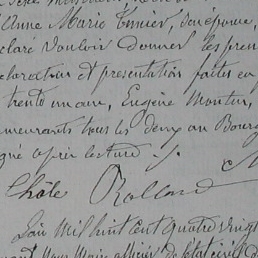 Anne Marie Tessier, son épouse,
claré vouloir donner les prén
claration et présentation faites en
trente un ans, Eugène Montin,
meurants tous les deux au Bourg
gné après lecture
Rolland
Juin Mil huit cent quatre vingt
Nous Maire officier de l'état civil d